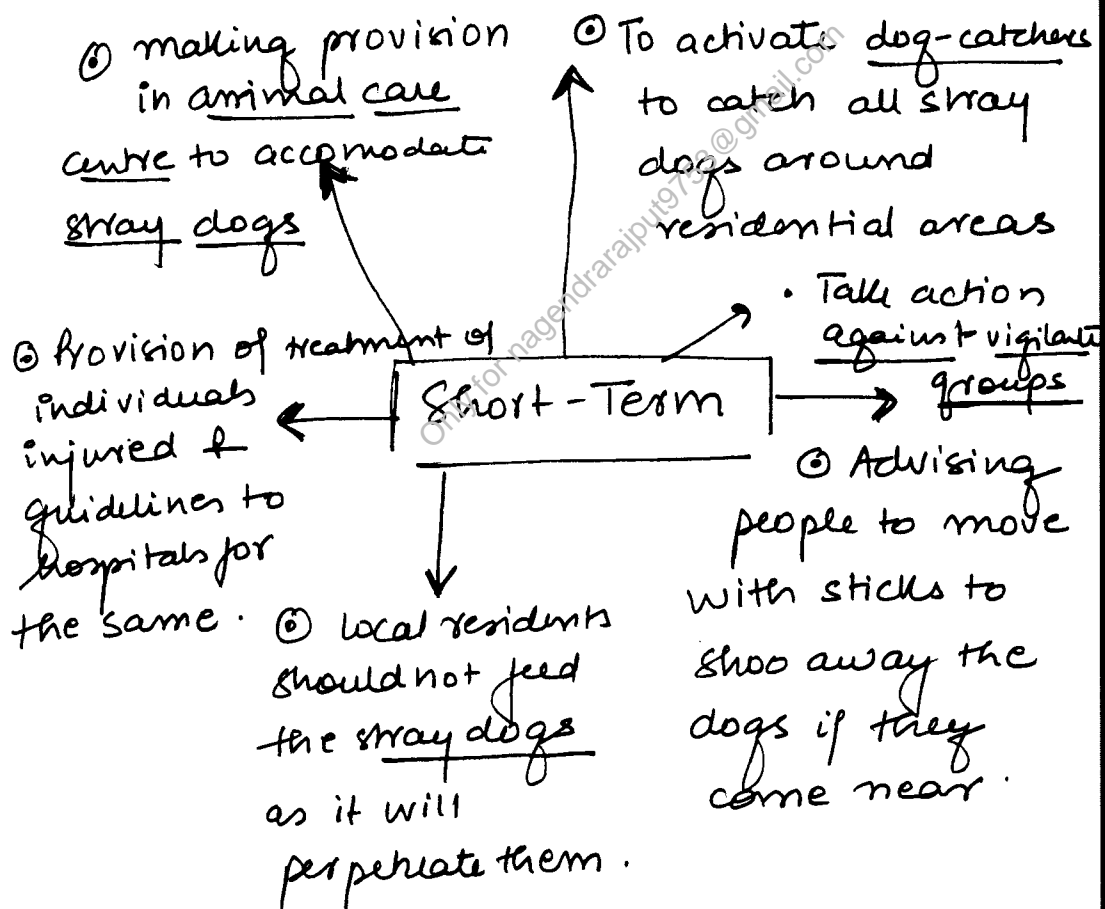 making provision
in animal care
centre to accomodate
stray dogs
To activate dog-catchers
to catch all stray
dogs around
residential areas
• Take action
against vigilante
groups
Provision of treatment of
individuals
injured &
guidelines to
hospitals for
the same.
Short-Term
Advising
people to move
with sticks to
shoo away the
dogs if they
come near.
local residents
should not feed
the stray dogs
as it will
perpetuate them.
Only for nagendrarajput9753@gmail.com